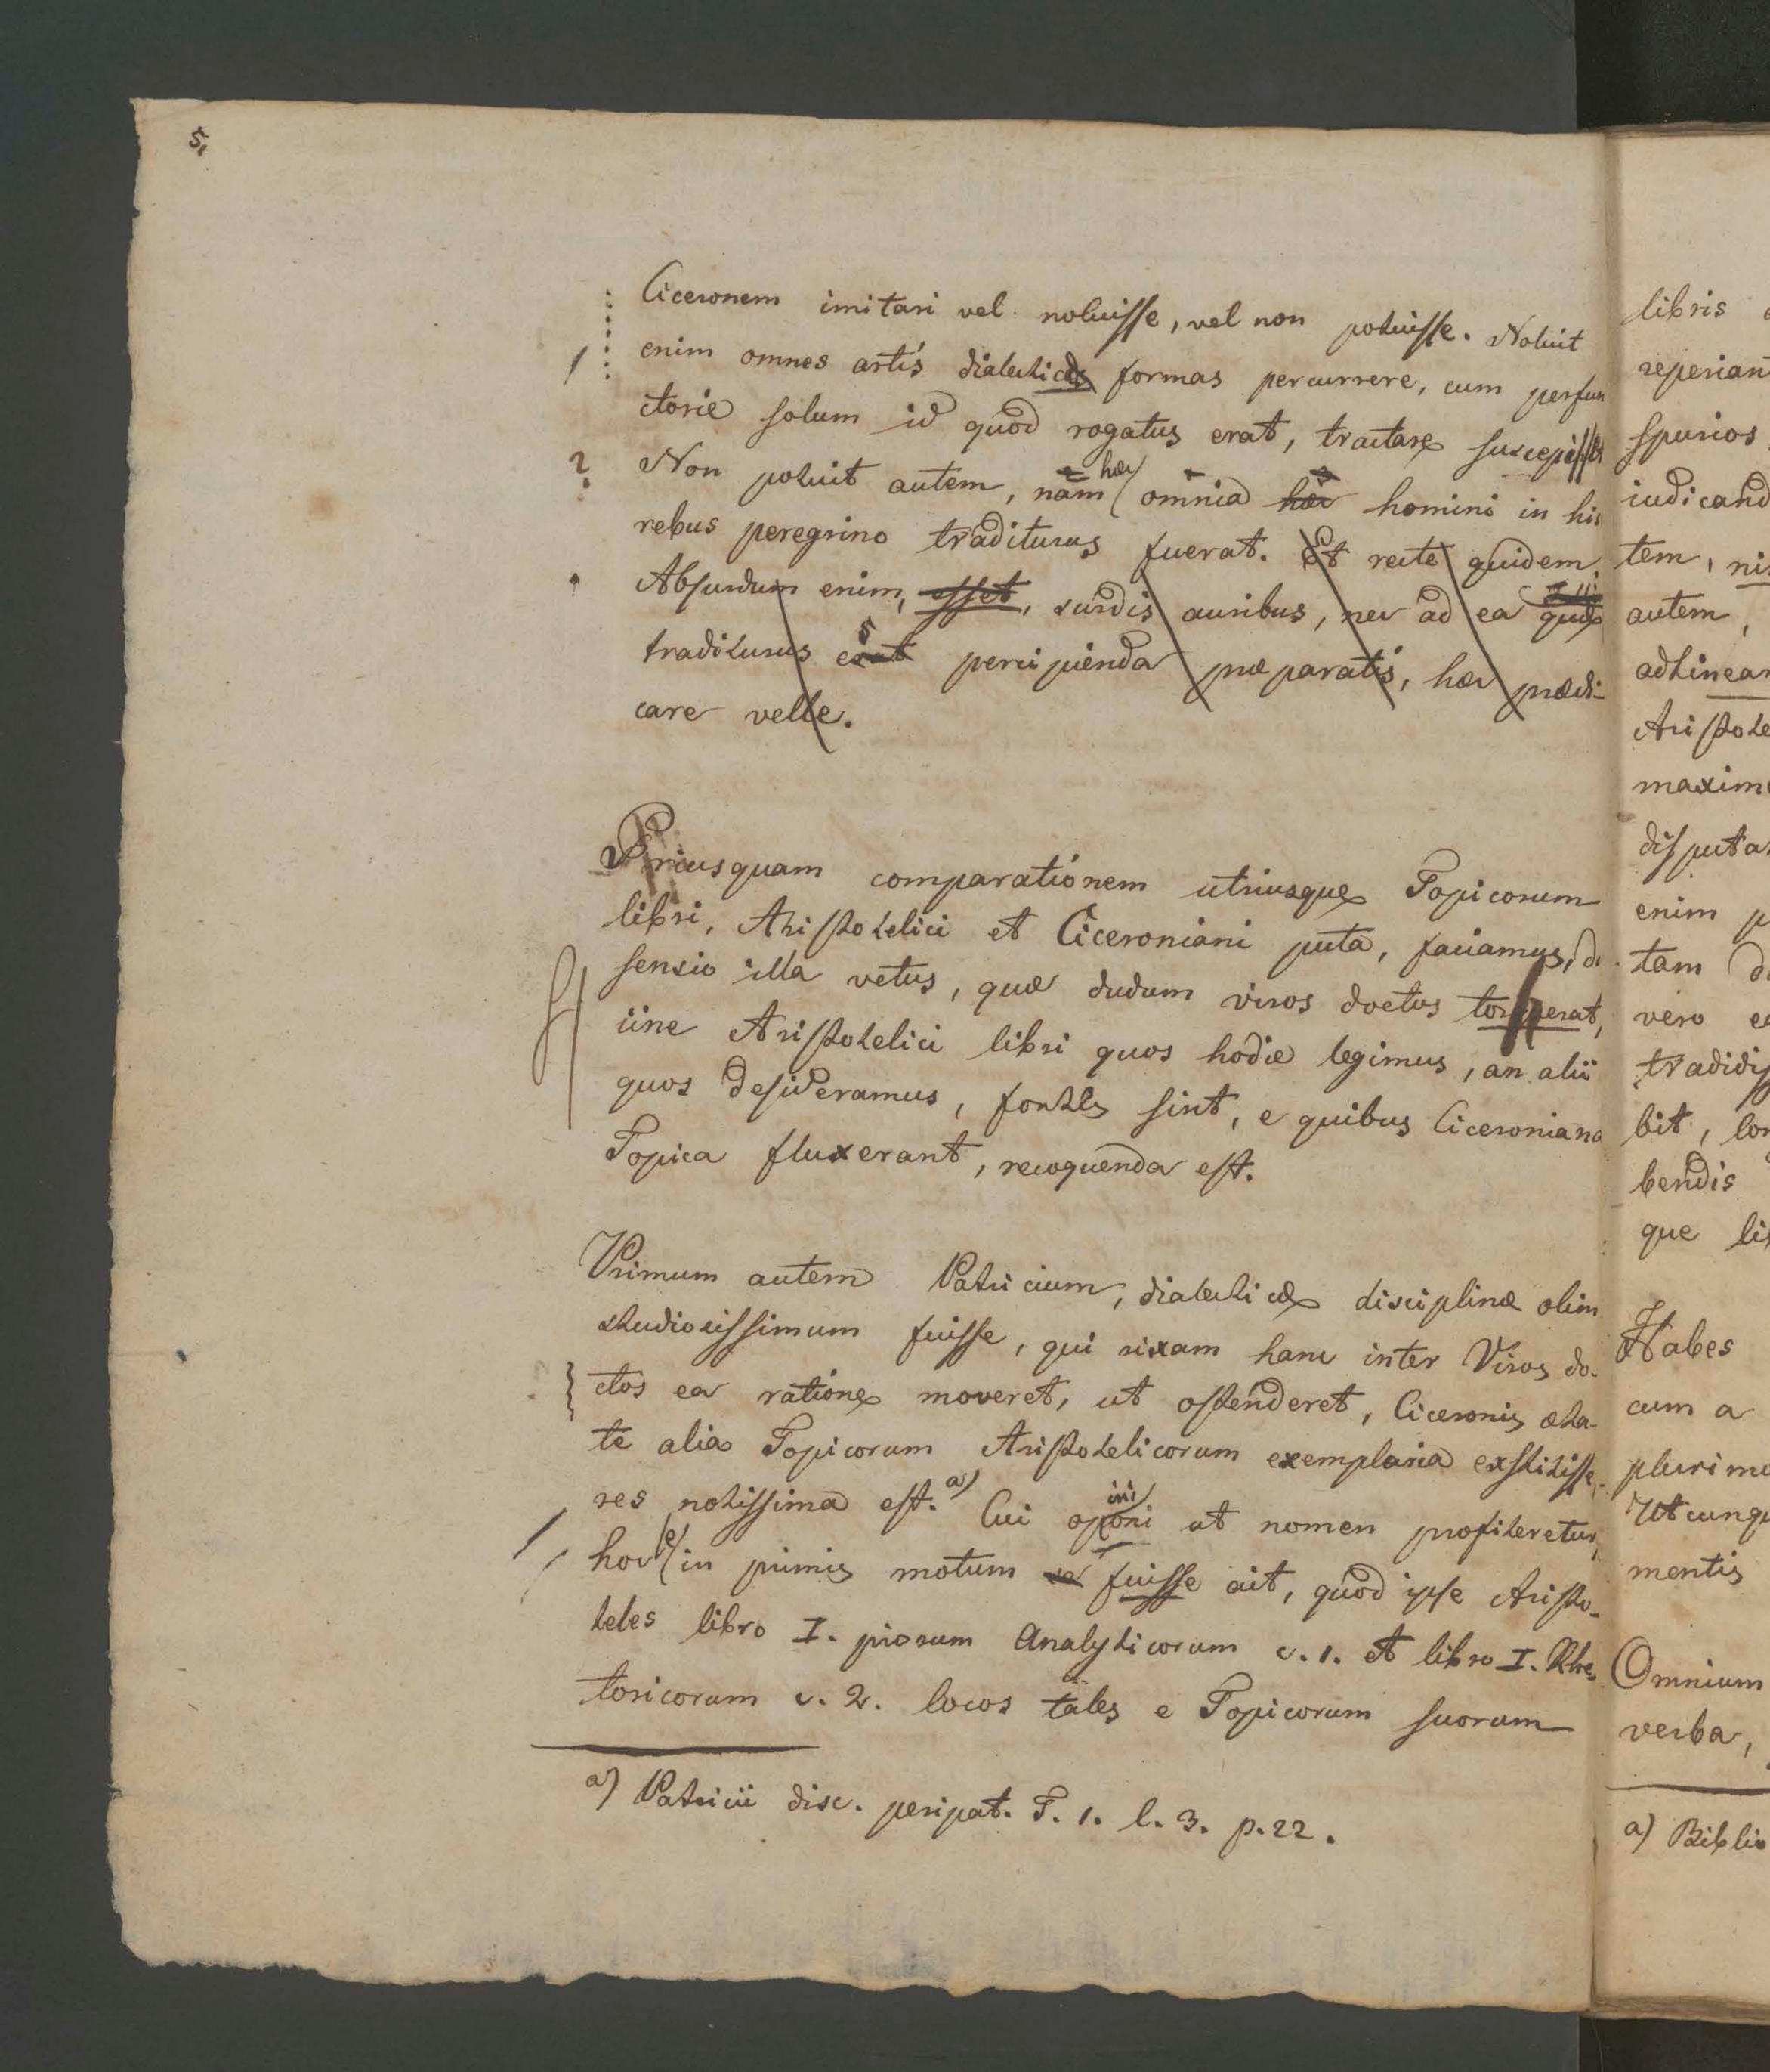 5.
Ciceronem imitari vel noluisse, vel non potuisse. Noluit
enim omnes artis dialecticæ formas percurrere, cum perfun
ctorie solum id quod rogatus erat, tractare suscepisset
? Non potuit autem, nam hæc omnia hæc homini in his
rebus peregrino traditurus fuerat. Et recte quidem.
Absurdum enim, esset, surdis auribus, nec ad ea quæ
traditurus erat percipienda præparatis, hæc prædi-
care velle.
Priusquam comparationem utriusque Topicorum
libri, Aristotelici et Ciceroniani puta, faciamus, di
sensio illa vetus, quæ dudum viros doctos torserat,
iine Aristotelici libri quos hodie legimus, an alii
quos desideramus, fontes sint, e quibus Ciceroniana
Topica fluxerant, recoquenda est.
Primum autem Patricium, dialecticæ disciplinæ olim
studiosissimum fuisse, qui rixam hanc inter Viros do-
ctos ea ratione moveret, ut ostenderet, Ciceronis æta-
te alia Topicorum Aristotelicorum exemplaria exstitisse,
res notissima est. a) Cui opini oni ut nomen profiteretur,
hoc in primis motum se fuisse ait, quod ipse Aristo-
teles libro I. priorum Analyticorum c. 1. et libro I. Rhe
toricorum c. 2. locos tales e Topicorum suorum
a) Patricii disc. peripat. T. 1. l. 3. p. 22.
libris
reperian
spurios
iudicand
tem, nis
autem,
adtinear
Aristote
maxim
disputa
enim p
tam d
vero e
tradidis
bit, lon
bendis
que li
Habes
cum a
plurimu
Utcunqu
mentis
Omnium
verba,
a) Biblio